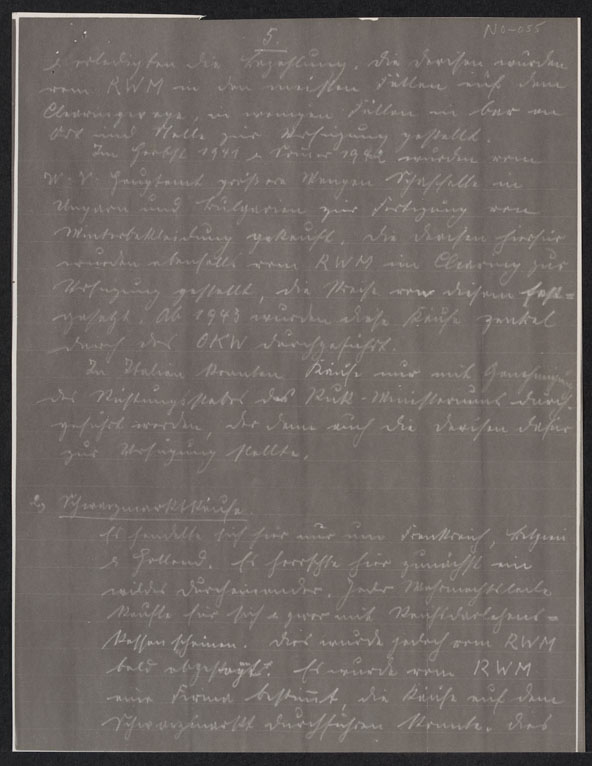 5.
NO-055
& erledigten die Bezahlung. Die Devisen wurden
vom RWM in den meisten Fällen auf dem
Clearingwege, in wenigen Fällen in bar an
Ort und Stelle zur Verfügung gestellt.
Im Herbst 1941 & Sommer 1942 wurden vom
W.V. Hauptamt größere Mengen Schaffelle in
Ungarn und Bulgarien zur Fertigung von
Winterbekleidung gekauft. Die Devisen hierfür
wurden ebenfalls vom RWM im Clearing zur
Verfügung gestellt, die Preise von diesem fest=
gesetzt. Ab 1943 wurden diese Käufe zentral
durch das OKW durchgeführt.
In Italien konnten Käufe nur mit Genehmigung
des Rüstungsstabes des Rük-Ministeriums durch
geführt werden, der dann auch die Devisen dafür
zur Verfügung stellte.
2) Schwarzmarktkäufe.
Es handelte sich hier nur um Frankreich, Belgien
& Holland. Es herrschte hier zunächst ein
wildes Durcheinander. Jeder Wehrmachtsteile
kaufte für sich & zwar mit Reichsdarlehens=
kassenscheinen. Dies wurde jedoch vom RWM
bald abgestoppt. Es wurde vom RWM
eine Firma bestimmt, die Käufe auf dem
Schwarzmarkt durchführen konnte. Dies